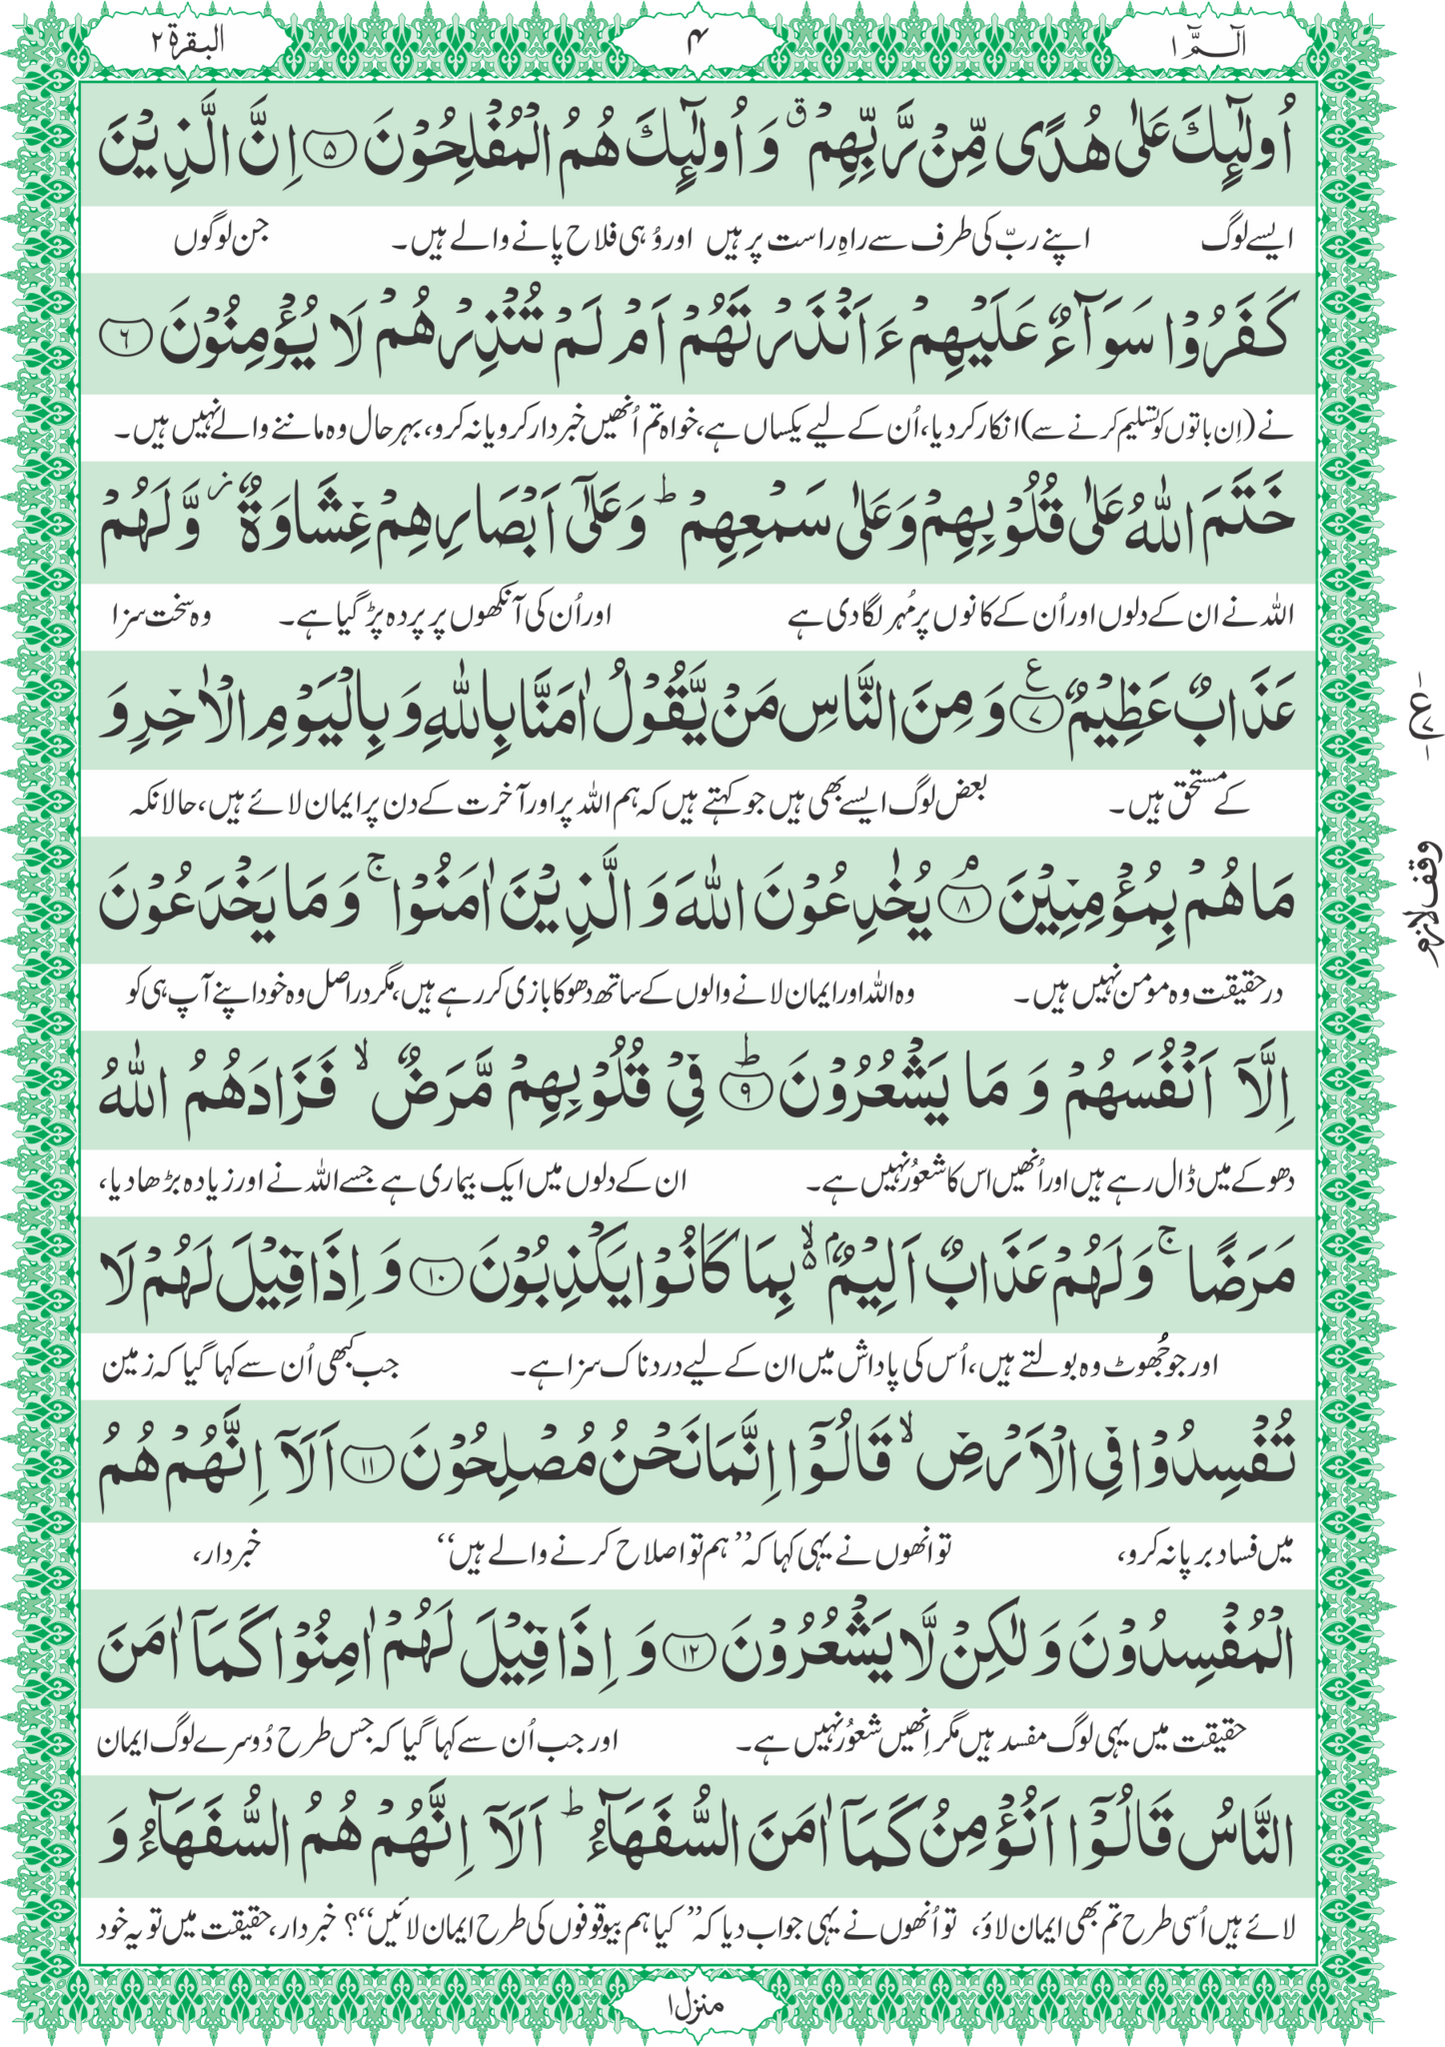 الٓمّٓ ١
۴
البقرة ٢
اُولٰٓئِكَ عَلٰى هُدًى مِّنْ رَّبِّهِمْ ۗ وَ اُولٰٓئِكَ هُمُ الْمُفْلِحُوْنَ ۝۵ اِنَّ الَّذِيْنَ
ایسے لوگ اپنے ربّ کی طرف سے راہِ راست پر ہیں اور وُہی فلاح پانے والے ہیں۔ جن لوگوں
كَفَرُوْا سَوَآءٌ عَلَيْهِمْ ءَاَنْذَرْتَهُمْ اَمْ لَمْ تُنْذِرْهُمْ لَا يُؤْمِنُوْنَ ۝۶
نے (اِن باتوں کو تسلیم کرنے سے) انکار کر دیا، اُن کے لیے یکساں ہے، خواہ تم اُنھیں خبردار کرو یا نہ کرو، بہرحال وہ ماننے والے نہیں ہیں۔
خَتَمَ اللّٰهُ عَلٰى قُلُوْبِهِمْ وَعَلٰى سَمْعِهِمْ ؕ وَعَلٰٓى اَبْصَارِهِمْ غِشَاوَةٌ ؗ وَّلَهُمْ
اللہ نے ان کے دلوں اور اُن کے کانوں پر مُہر لگا دی ہے اور اُن کی آنکھوں پر پردہ پڑ گیا ہے۔ وہ سخت سزا
عَذَابٌ عَظِيْمٌ ۝۷ ع وَ مِنَ النَّاسِ مَنْ يَّقُوْلُ اٰمَنَّا بِاللّٰهِ وَ بِالْيَوْمِ الْاٰخِرِ وَ
کے مستحق ہیں۔ بعض لوگ ایسے بھی ہیں جو کہتے ہیں کہ ہم اللہ پر اور آخرت کے دن پر ایمان لائے ہیں، حالانکہ
مَا هُمْ بِمُؤْمِنِيْنَ ۝۸ۘ يُخٰدِعُوْنَ اللّٰهَ وَ الَّذِيْنَ اٰمَنُوْا ۚ وَ مَا يَخْدَعُوْنَ
در حقیقت وہ مومن نہیں ہیں۔ وہ اللہ اور ایمان لانے والوں کے ساتھ دھوکا بازی کر رہے ہیں، مگر دراصل وہ خود اپنے آپ ہی کو
وقف لازم
اِلَّاۤ اَنْفُسَهُمْ وَ مَا يَشْعُرُوْنَ ۝۹ؕ فِيْ قُلُوْبِهِمْ مَّرَضٌ ۙ فَزَادَهُمُ اللّٰهُ
دھوکے میں ڈال رہے ہیں اور اُنھیں اس کا شعوُر نہیں ہے۔ ان کے دلوں میں ایک بیماری ہے جسے اللہ نے اور زیادہ بڑھا دیا،
مَرَضًا ۚ وَ لَهُمْ عَذَابٌ اَلِيْمٌۢ ۙ۬ بِمَا كَانُوْا يَكْذِبُوْنَ ۝۱۰ وَ اِذَا قِيْلَ لَهُمْ لَا
اور جو جُھوٹ وہ بولتے ہیں، اُس کی پاداش میں ان کے لیے دردناک سزا ہے۔ جب کبھی اُن سے کہا گیا کہ زمین
تُفْسِدُوْا فِي الْاَرْضِ ۙ قَالُوْۤا اِنَّمَا نَحْنُ مُصْلِحُوْنَ ۝۱۱ اَلَاۤ اِنَّهُمْ هُمُ
میں فساد برپا نہ کرو، تو انھوں نے یہی کہا کہ ’’ہم تو اصلاح کرنے والے ہیں‘‘ خبردار،
الْمُفْسِدُوْنَ وَ لٰكِنْ لَّا يَشْعُرُوْنَ ۝۱۲ وَ اِذَا قِيْلَ لَهُمْ اٰمِنُوْا كَمَاۤ اٰمَنَ
حقیقت میں یہی لوگ مفسد ہیں مگر اِنھیں شعوُر نہیں ہے۔ اور جب اُن سے کہا گیا کہ جس طرح دُوسرے لوگ ایمان
النَّاسُ قَالُوْۤا اَنُؤْمِنُ كَمَاۤ اٰمَنَ السُّفَهَآءُ ؕ اَلَاۤ اِنَّهُمْ هُمُ السُّفَهَآءُ وَ
لائے ہیں اُسی طرح تم بھی ایمان لاؤ، تو اُنھوں نے یہی جواب دیا کہ ’’کیا ہم بیوقوفوں کی طرح ایمان لائیں‘‘؟ خبردار، حقیقت میں تو یہ خود
منزل ١